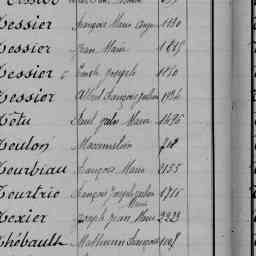 Tessier François Marie Ange 1830
Tessier Jean Marie 1815
Tessier Emile Joseph 1870
Tessier Alfred François Julien 1924
Tôtu Paul Jules Marie 1696
Toulon Maximilien 718
Tourbiau François Marie 2155
Tourtrie François Joseph Julien 1716
Marie
Texier Joseph Jean Marie 2323
Thébault Mathurin François